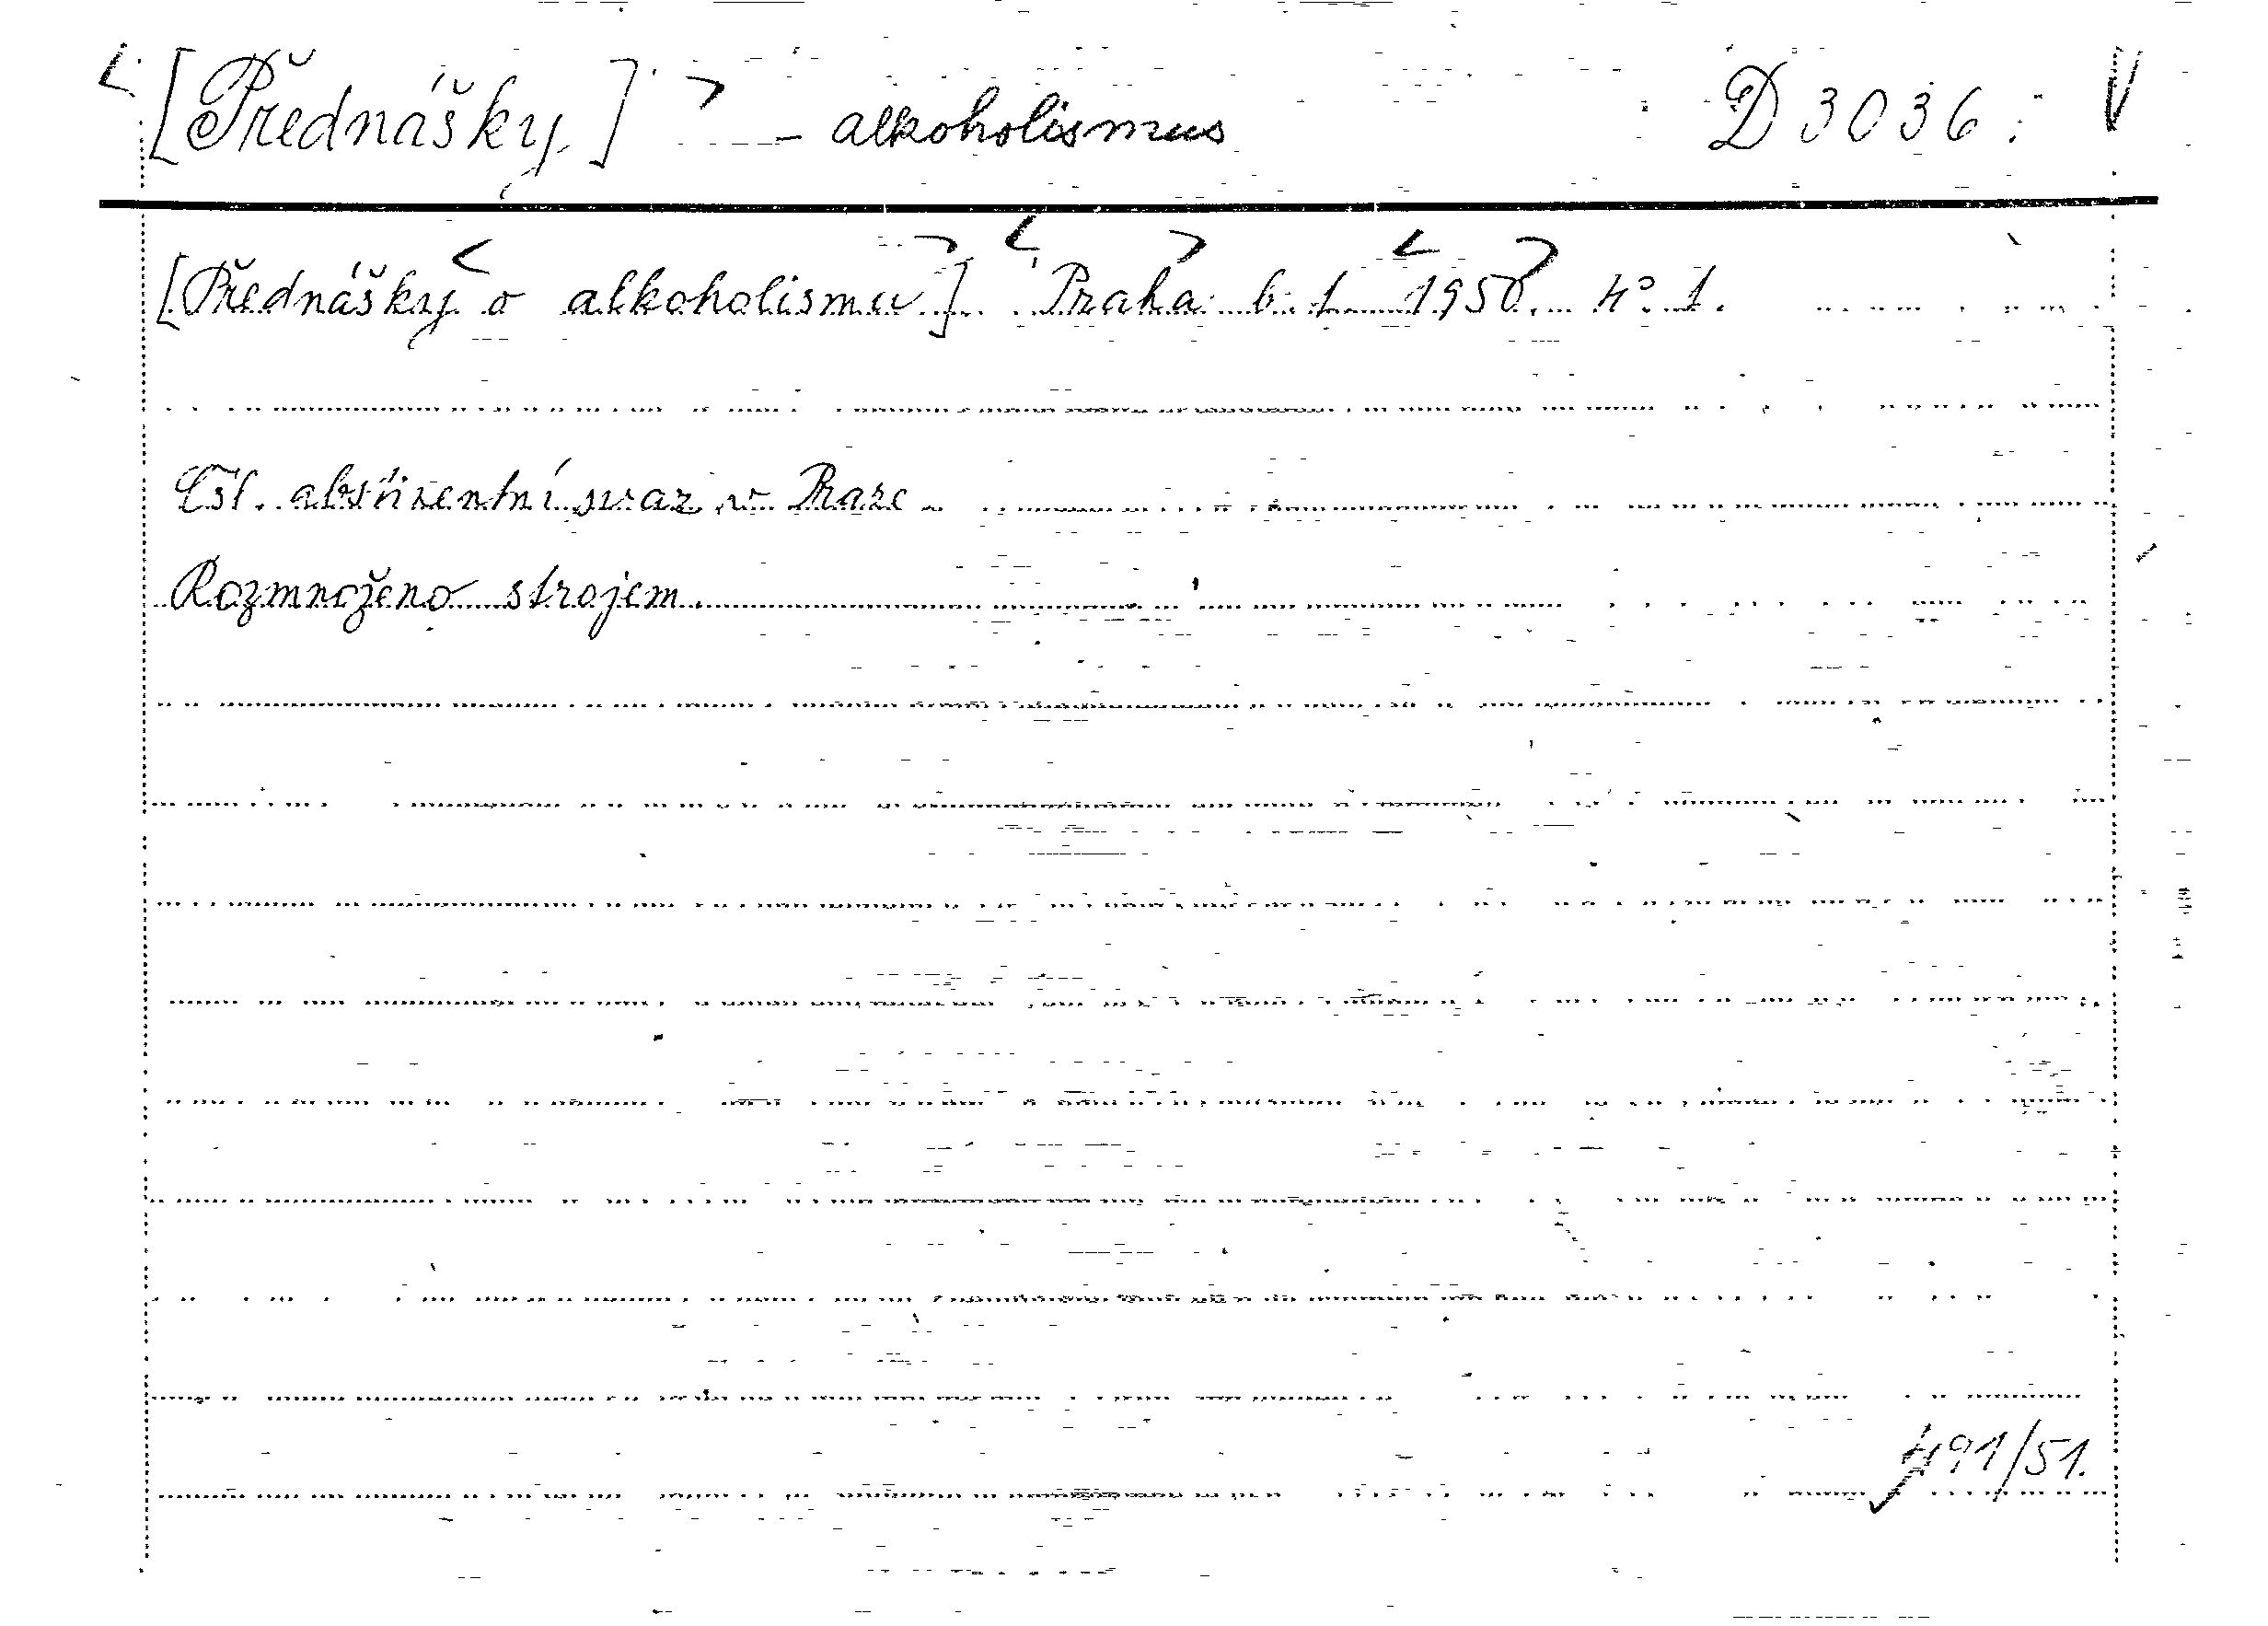 <[Přednášky.]> - alkoholismus D 3036. V
[Přednášky < o alkoholismu>]. <Praha> b. t. <1950>. 4°. 1.
Čsl. abstinentní svaz v Praze.
Rozmnoženo strojem.
491/51.